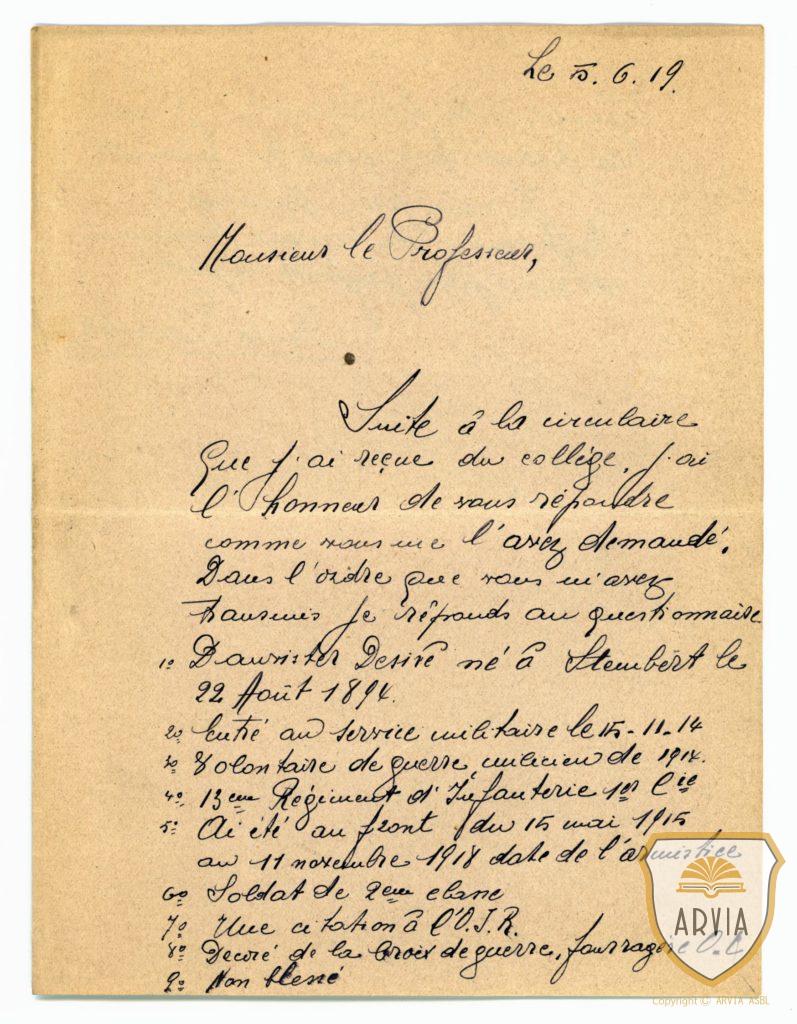 Le 15.6.19.
Monsieur le Professeur,
Suite à la circulaire
que j'ai reçue du collège, j'ai
l'honneur de vous répondre
comme vous me l'avez demandé.
Dans l'ordre que vous m'avez
transmis je réponds au questionnaire
1º Dauvister Desiré né à Stembert le
22 Août 1894.
2º Entré au service militaire le 15-11-14
3º Volontaire de guerre, milicien de 1914.
4º 13eme Régiment d'Infanterie 1er Cie
5º Ai été au front du 15 mai 1915
au 11 novembre 1918 date de l'armistice
6º Soldat de 2eme classe
7º Une citation à l'O.J.R.
8º Decoré de la Croix de guerre, fourragère
9º Non blessé
ARVIA
Copyright © ARVIA ASBL